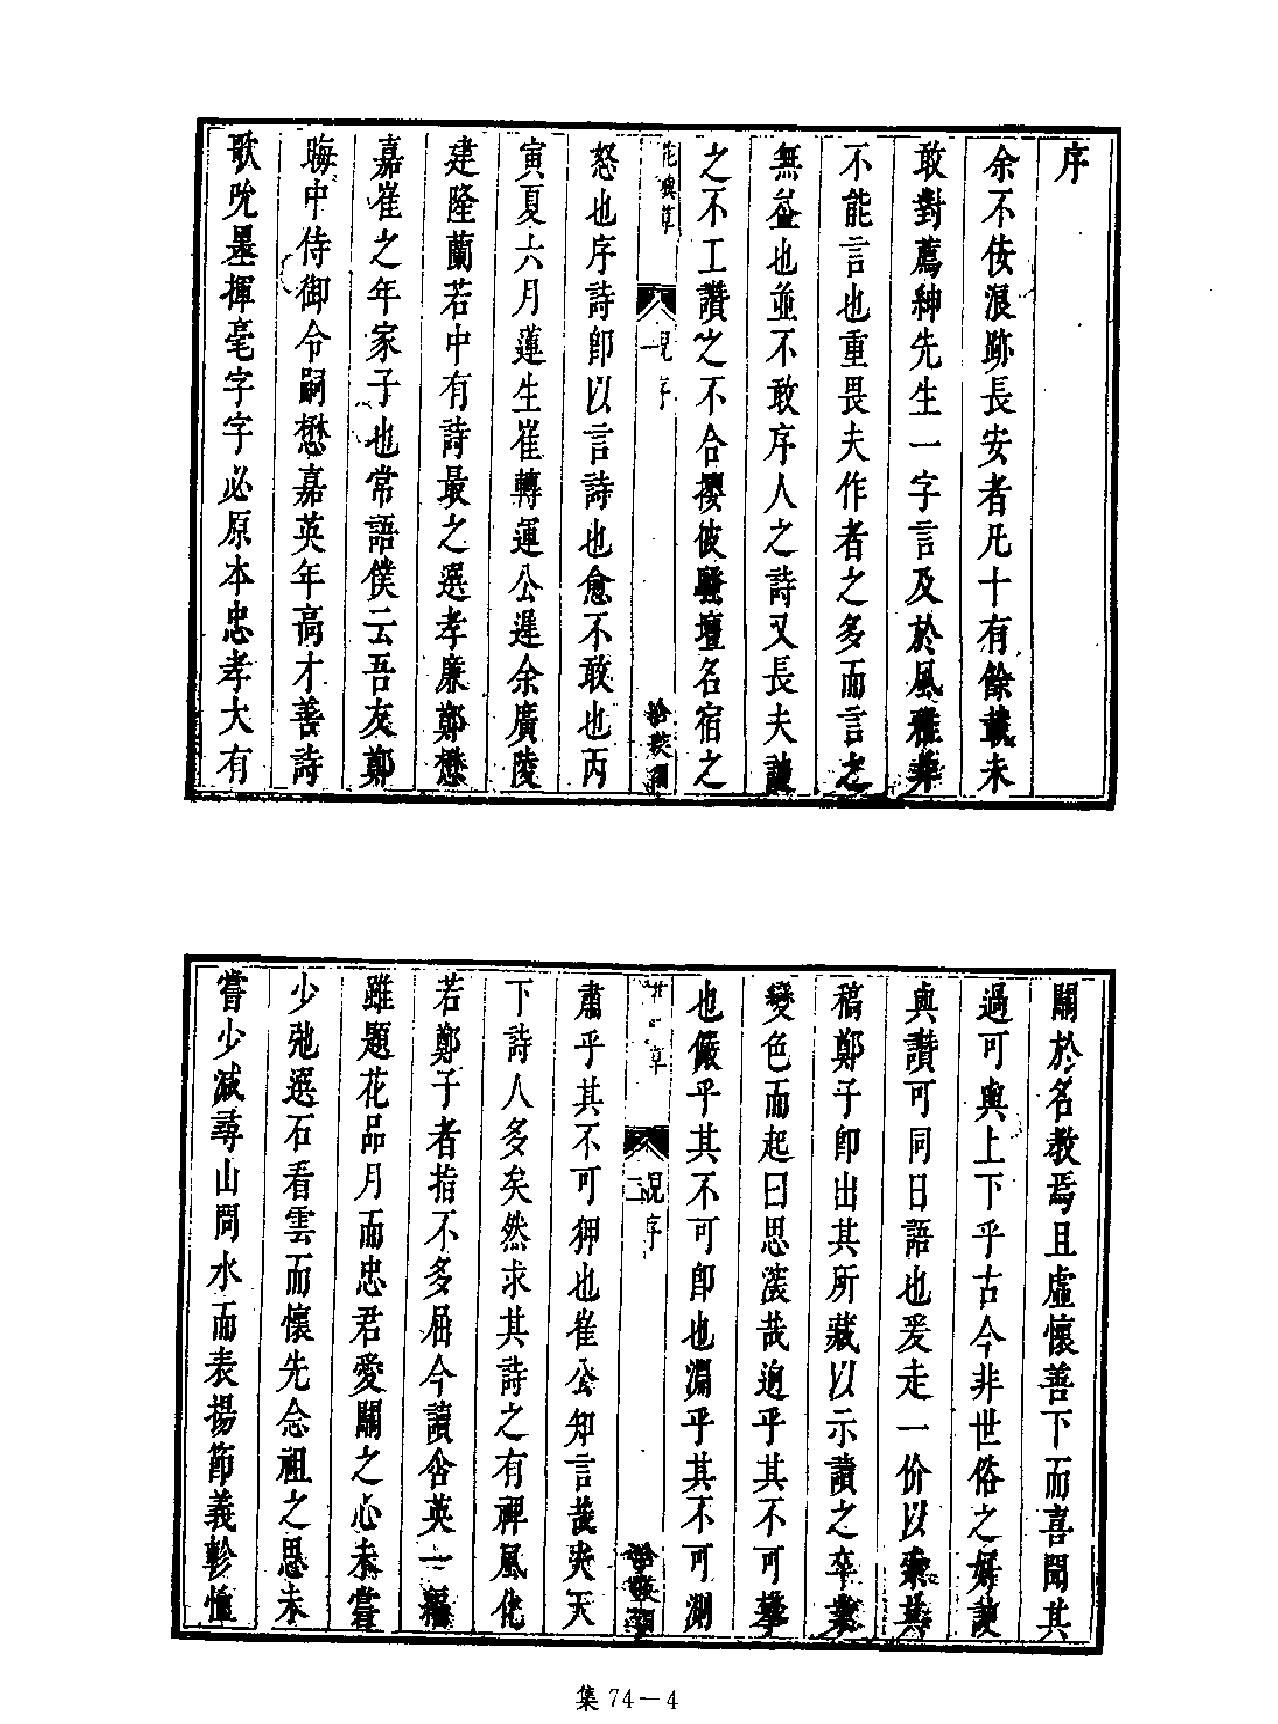 序
余不佞浪跡長安者凡十有餘載未
敢對薦紳先生一字言及於風雅非
不能言也重畏夫作者之多而言之
無益也並不敢序人之詩又長夫讀
之不工讚之不合攖彼騷壇名宿之
草
一 序
怒也序詩即以言詩也愈不敢也丙
寅夏六月蓮生崔轉運公遲余廣陵
建隆蘭若中有詩最之選孝廉鄭懋
嘉崔之年家子也常語僕云吾友鄭
晦中侍御令嗣懋嘉英年高才善詩
歌吮墨揮毫字字必原本忠孝大有
關於名教焉且虛懷善下而喜聞其
過可輿上下乎古今非世俗之好諛
與讚可同日語也爰走一价以索其
稿鄭子即出其所藏以示讀之卒業
變色而起曰思濚哉逈乎其不可攀
也儼乎其不可即也淵乎其不可測
草
二 序
肅乎其不可狎也崔公知言哉夫天
下詩人多矣然求其詩之有裨風化
若鄭子者指不多屈今讀含英一編
雖題花品月而忠君愛關之心未嘗
少弛選石看雲而懷先念祖之思未
嘗少減尋山問水而表揚節義軫恤
集 74－4